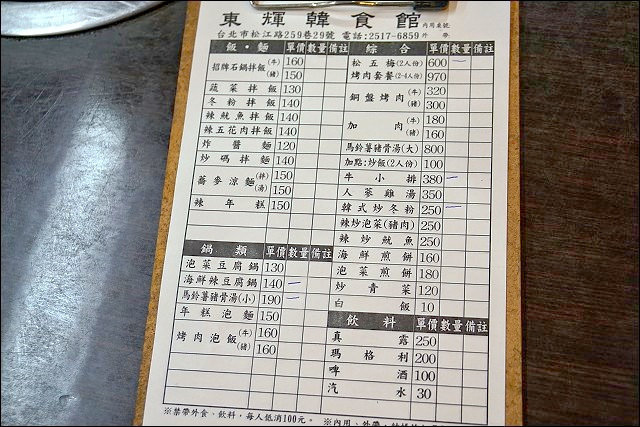 東輝韓食館 內用桌號
台北市松江路259巷29號 電話:2517-6859 外 帶
飯・麵 單價 數量 備註
招牌石鍋拌飯(牛) 160
(豬) 150
蔬菜拌飯 130
冬粉拌飯 140
辣魷魚拌飯 140
辣五花肉拌飯 140
炸醬麵 120
炒碼拌麵 140
蕎麥涼麵(拌) 150
(湯) 150
辣年糕 150
鍋類 單價 數量 備註
泡菜豆腐鍋 130
海鮮辣豆腐鍋 140 一
馬鈴薯豬骨湯(小) 190 一
年糕泡麵 150
烤肉泡飯(牛) 160
(豬) 160
綜合 單價 數量 備註
松五梅(2人份) 600 一
烤肉套餐(2-4人份) 970
銅盤烤肉(牛) 320
(豬) 300
加肉(牛) 180
(豬) 160
馬鈴薯豬骨湯(大) 800
加點:炒飯(2人份) 100
牛小排 380 一
人蔘雞湯 350
韓式炒冬粉 250 一
辣炒泡菜(豬肉) 250
辣炒魷魚 250
海鮮煎餅 160
泡菜煎餅 180
炒青菜 120
白飯 10
飲料 單價 數量 備註
真露 250
瑪格利 200
啤酒 100
汽水 30
※禁帶外食、飲料，每人低消100元。 ※內用、外帶